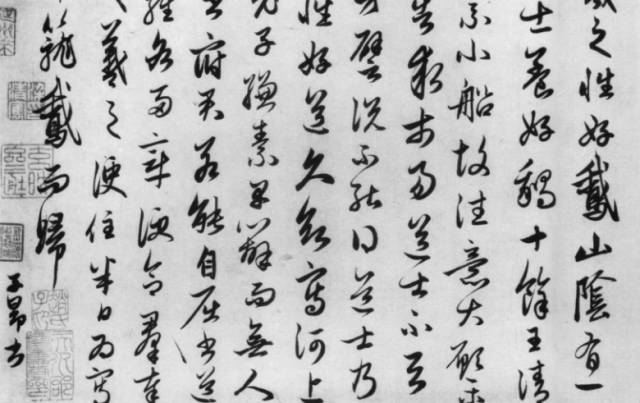 羲之性好鵞山陰有一
士養好鵝十餘王清
乘小船故往意大願樂
告求市易道士不与
譬説不能得道士乃
性好道久欲寫河上
老子縑素早辦而無人
書府君若能自屈書道
經各兩章便合羣奉
羲之便住半日為寫
籠鵞而歸
子昂書